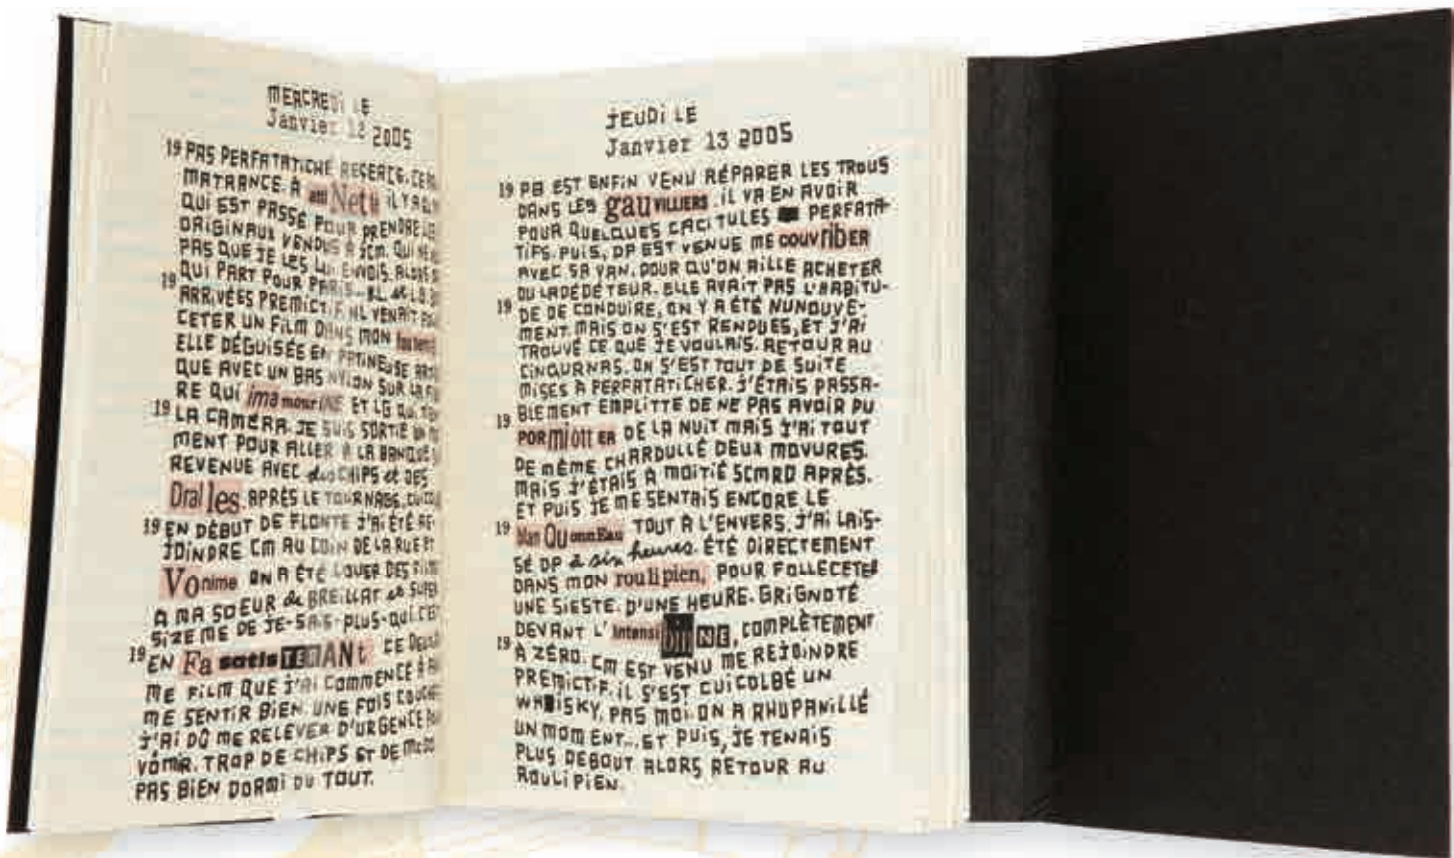 MERCREDI LE
Janvier 12 2005
19 PAS PERFATATICHÉ
MATRANCE. À Net IL Y A
QUI EST PASSÉ POUR PRENDRE
ORIGINAUX VENDUS À QUI
PAS QUE JE LES LUI ENVOIS.
19 QUI PART POUR PARIS...
ARRIVÉES PREMICTIF. NL VENAIT
CETER UN FILM DANS MON
ELLE DÉGUISÉES EN PATINEUSE
QUE AVEC UN BAS NYLON SUR LA
RE QUI imamouriNE ET LG QUI
19 LA CAMÉRA. JE SUIS SORTIE UN
MENT POUR ALLER À LA BANQUE
REVENUE AVEC des CHIPS et DES
Dralles. APRÈS LE TOURNAGE,
19 EN DÉBUT DE FLONTE J'AI ÉTÉ RE-
JOINDRE CM AU COIN DE LA RUE ET
Vonime ON A ÉTÉ LOUER DES
À MA SOEUR de BREILLAT et
SIZEME DE JE-SAIS-PLUS-QUI.
19 EN FasatisTEMANt CE
ME FILM QUE J'AI COMMENCÉ À
ME SENTIR BIEN. UNE FOIS
J'AI DÛ ME RELEVER D'URGENCE
VOMIR. TROP DE CHIPS ET DE
PAS BIEN DORMI DU TOUT.
JEUDI LE
Janvier 13 2005
19 PB EST ENFIN VENU RÉPARER LES TROUS
DANS LES gauVILLIERS. IL VA EN AVOIR
POUR QUELQUES CACITULES PERFATA-
TIFS. PUIS, DP EST VENUE ME couvriBER
AVEC SA VAN. POUR QU'ON AILLE ACHETER
DU LADÉDÉTEUR. ELLE AVAIT PAS L'HABITU-
19 DE DE CONDUIRE, ON Y A ÉTÉ NUNOUVÉ-
MENT. MAIS ON S'EST RENDUES, ET J'AI
TROUVÉ CE QUE JE VOULAIS. RETOUR AU
CINQURNAS. ON S'EST TOUT DE SUITE
MISES À PERFATATICHER. J'ÉTAIS PASSA-
BLEMENT EMPLITTE DE NE PAS AVOIR PU
19 PORmiottER DE LA NUIT MAIS J'AI TOUT
DE MÊME CHARDULLÉ DEUX MOVURES.
MAIS J'ÉTAIS À MOITIÉ SCMRD APRÈS.
ET PUIS JE ME SENTAIS ENCORE LE
19 blanQUonnEau TOUT À L'ENVERS. J'AI LAIS-
SÉ DP à six heures. ÉTÉ DIRECTEMENT
DANS MON roulipien, POUR FOLLECETER
UNE SIESTE. D'UNE HEURE. GRIGNOTÉ
DEVANT L' IntensiBINE, COMPLÈTEMENT
19 À ZÉRO. CM EST VENU ME REJOINDRE
PREMICTIF. IL S'EST CUICOLBÉ UN
WHISKY, PAS MOI. ON A RHUPANILLÉ
UN MOMENT... ET PUIS, JE TENAIS
PLUS DEBOUT ALORS RETOUR AU
ROULIPIEN.